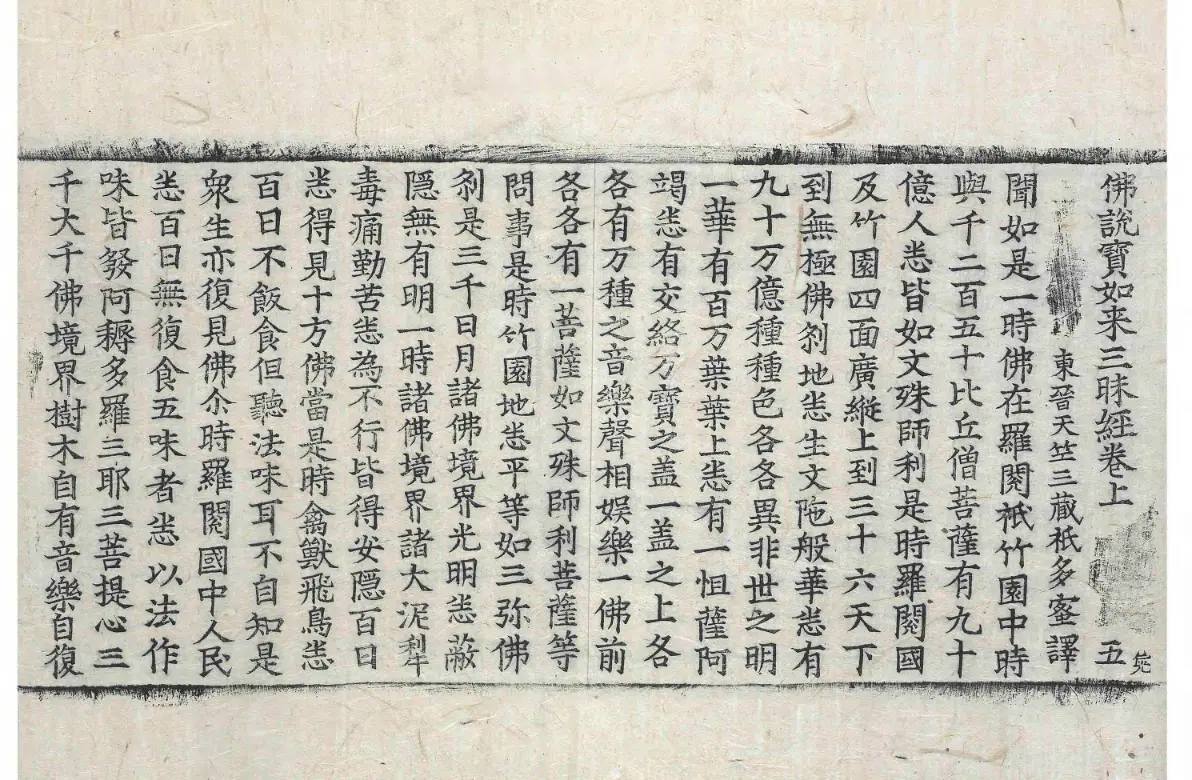 佛說寶如来三昧經卷上
五
東晉天竺三藏祇多蜜譯
聞如是一時佛在羅閱祇竹園中時
與千二百五十比丘僧菩薩有九十
億人悉皆如文殊師利是時羅閱國
及竹園四面廣縱上到三十六天下
到無極佛刹地悉生文陁般華悉有
九十万億種種色各各異非世之明
一華有百万葉葉上悉有一怛薩阿
竭悉有交絡万寶之盖一盖之上各
各有万種之音樂聲相娛樂一佛前
各各有一菩薩如文殊師利菩薩等
問事是時竹園地悉平等如三弥佛
刹是三千日月諸佛境界光明悉蔽
隱無有明一時諸佛境界諸大泥犁
毒痛勤苦悉為不行皆得安隱百日
悉得見十方佛當是時禽獸飛鳥悉
百日不飯食但聽法味耳不自知是
衆生亦復見佛尒時羅閱國中人民
悉百日無復食五味者悉以法作
味皆發阿耨多羅三耶三菩提心三
千大千佛境界樹木自有音樂自復